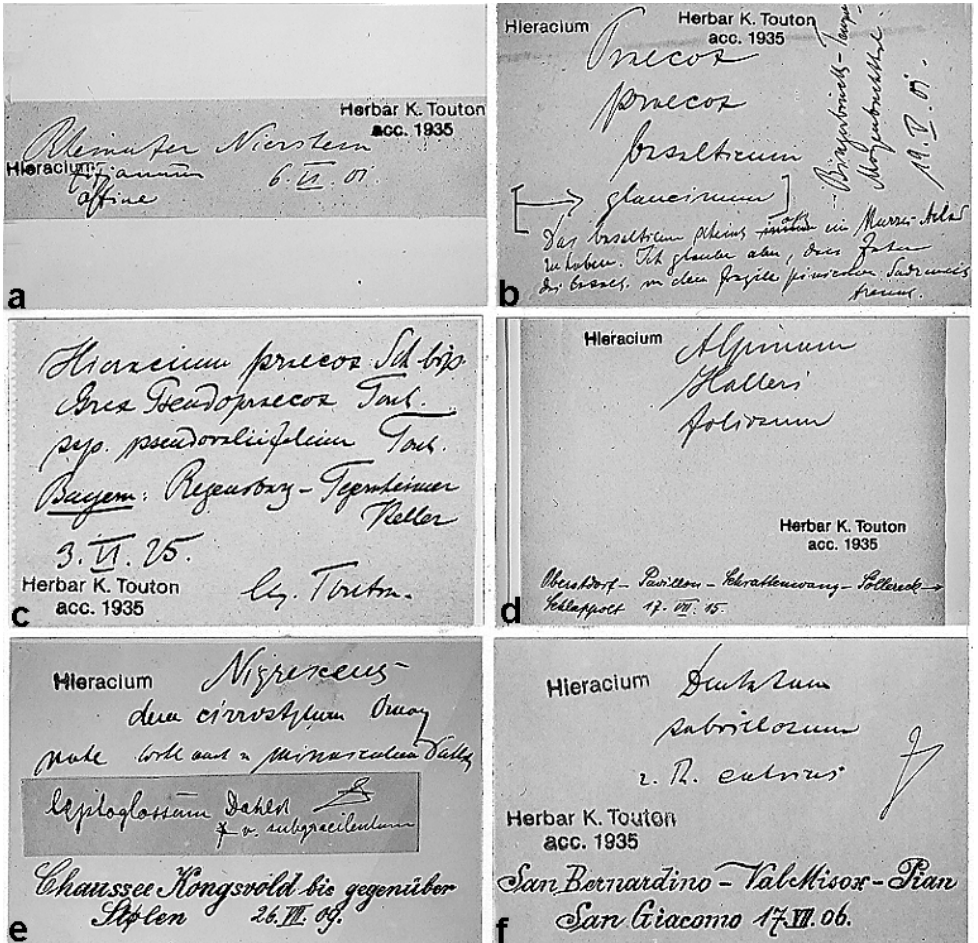 Herbar K. Touton
acc. 1935
Rheinufer Nierstein
Hieracium
affine
6. VI. 01.
a
Hieracium
Herbar K. Touton
acc. 1935
Praecox
praecox
basalticum
glaucinum
19. V. 01.
Das basalticum scheint ein
zu haben. Ich glaube aber, dass
b
Hieracium praecox Sch. bip.
Grex Pseudopraecox Tout.
ssp. Tout.
Bayern: Regensburg – Tegernheimer
Keller
3. VI. 25.
Herbar K. Touton
acc. 1935
leg. Touton.
c
Hieracium
Alpinum
Halleri
foliosum
Herbar K. Touton
acc. 1935
Oberstdorf – Pavillon – Schrattenwang – Söllereck →
Schlappolt 17. VII. 15.
d
Hieracium
Nigrescens
dem cirrostylum Omang
nahe
leptoglossum Dahlst
v. subgracilentum
Chaussee Kongsvold bis gegenüber
Stølen 26. VII. 09.
e
Hieracium
Dentatum
subvillosum
Herbar K. Touton
acc. 1935
San Bernardino – Val Misox – Pian
San Giacomo 17. VII. 06.
f